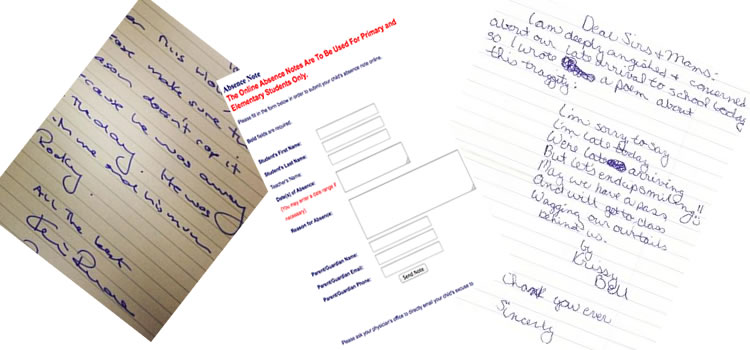 ease make sure t
eason doesn't rep it
cause he was away
Tuesday. He was
me and his mum
Rocky.
All the best
Absence Note
The Online Absence Notes Are To Be Used For Primary and
Elementary Students Only.
Please fill in the form below in order to submit your child's absence note online.
Bold fields are required.
Student's First Name:
Student's Last Name:
Teacher's Name:
Date(s) of Absence:
(You may enter a date range if
necessary)
Reason for Absence:
Parent/Guardian Name:
Parent/Guardian Email:
Parent/Guardian Phone:
Send Note
Please ask your physician's office to directly email your child's excuse to
Dear Sirs & Mams:
I am deeply angushed & concerned
about our late arrival to school today
so I wrote a poem about
this traggity:
I'm sorry to say
I'm late today
Were late arriving
But let's end up smiling!!
May we have a pass
And will got to class
Wagging our ourtails
behind us.
by
Krissy
Dell
thank you ever
Sincerly